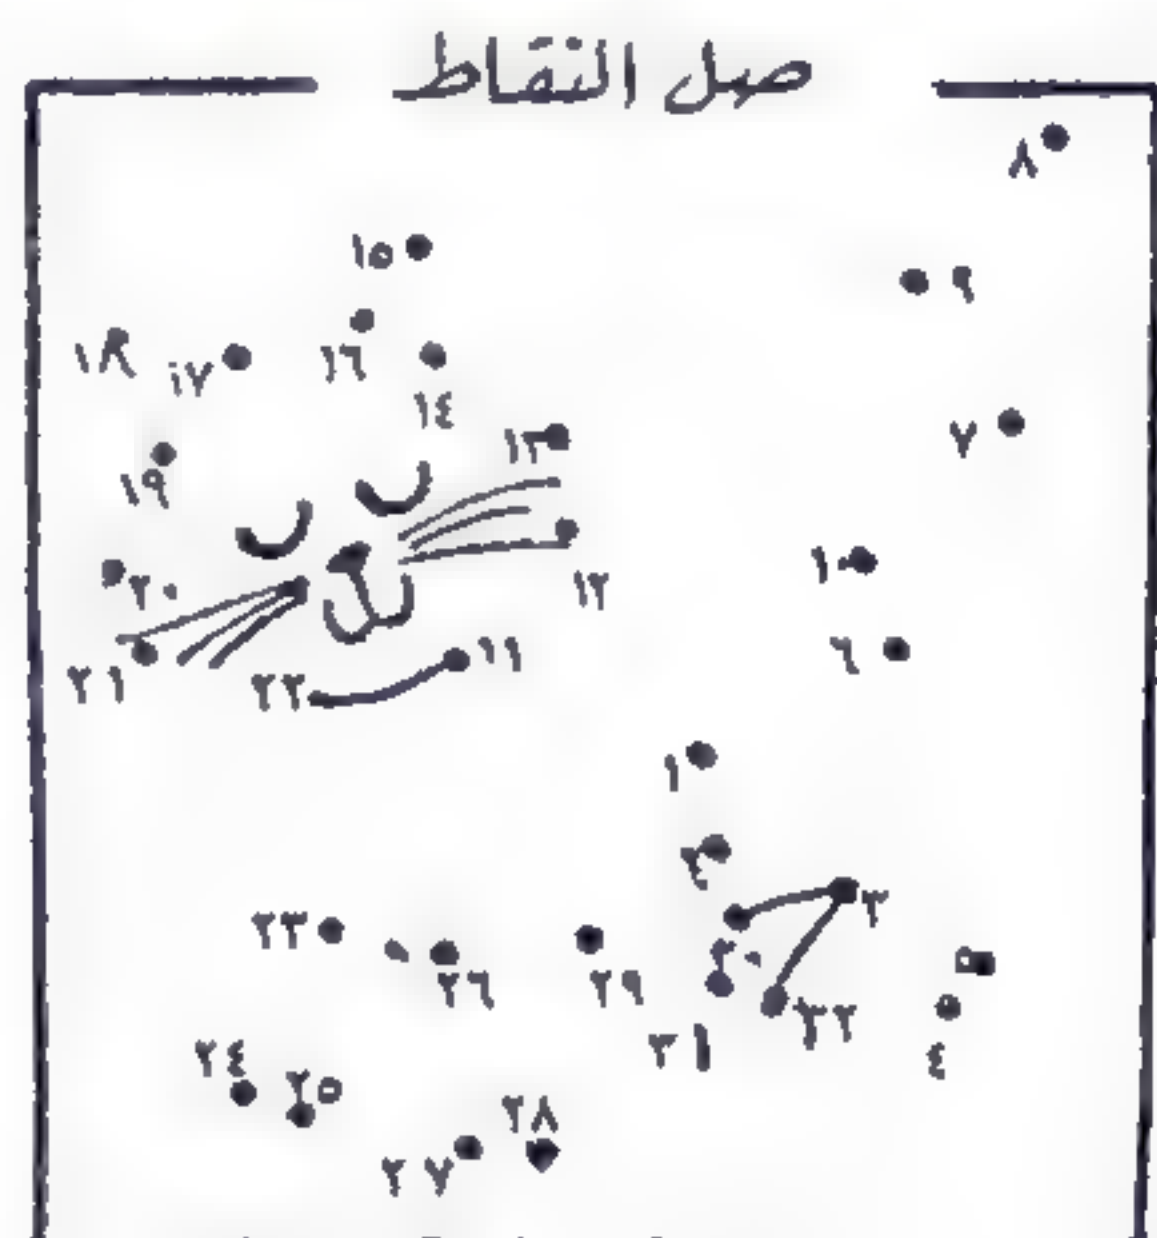 صل النقاط
٨
١٥
٩
١٨
١٧
١٦
١٤
١٣
٧
١٩
١٠
٢٠
١٢
٦
٢١
٢٢
١١
١
٣
٢٣
٢٦
٢٩
٣٠
٥
٣١
٣٢
٤
٢٤
٢٥
٢٨
٢٧